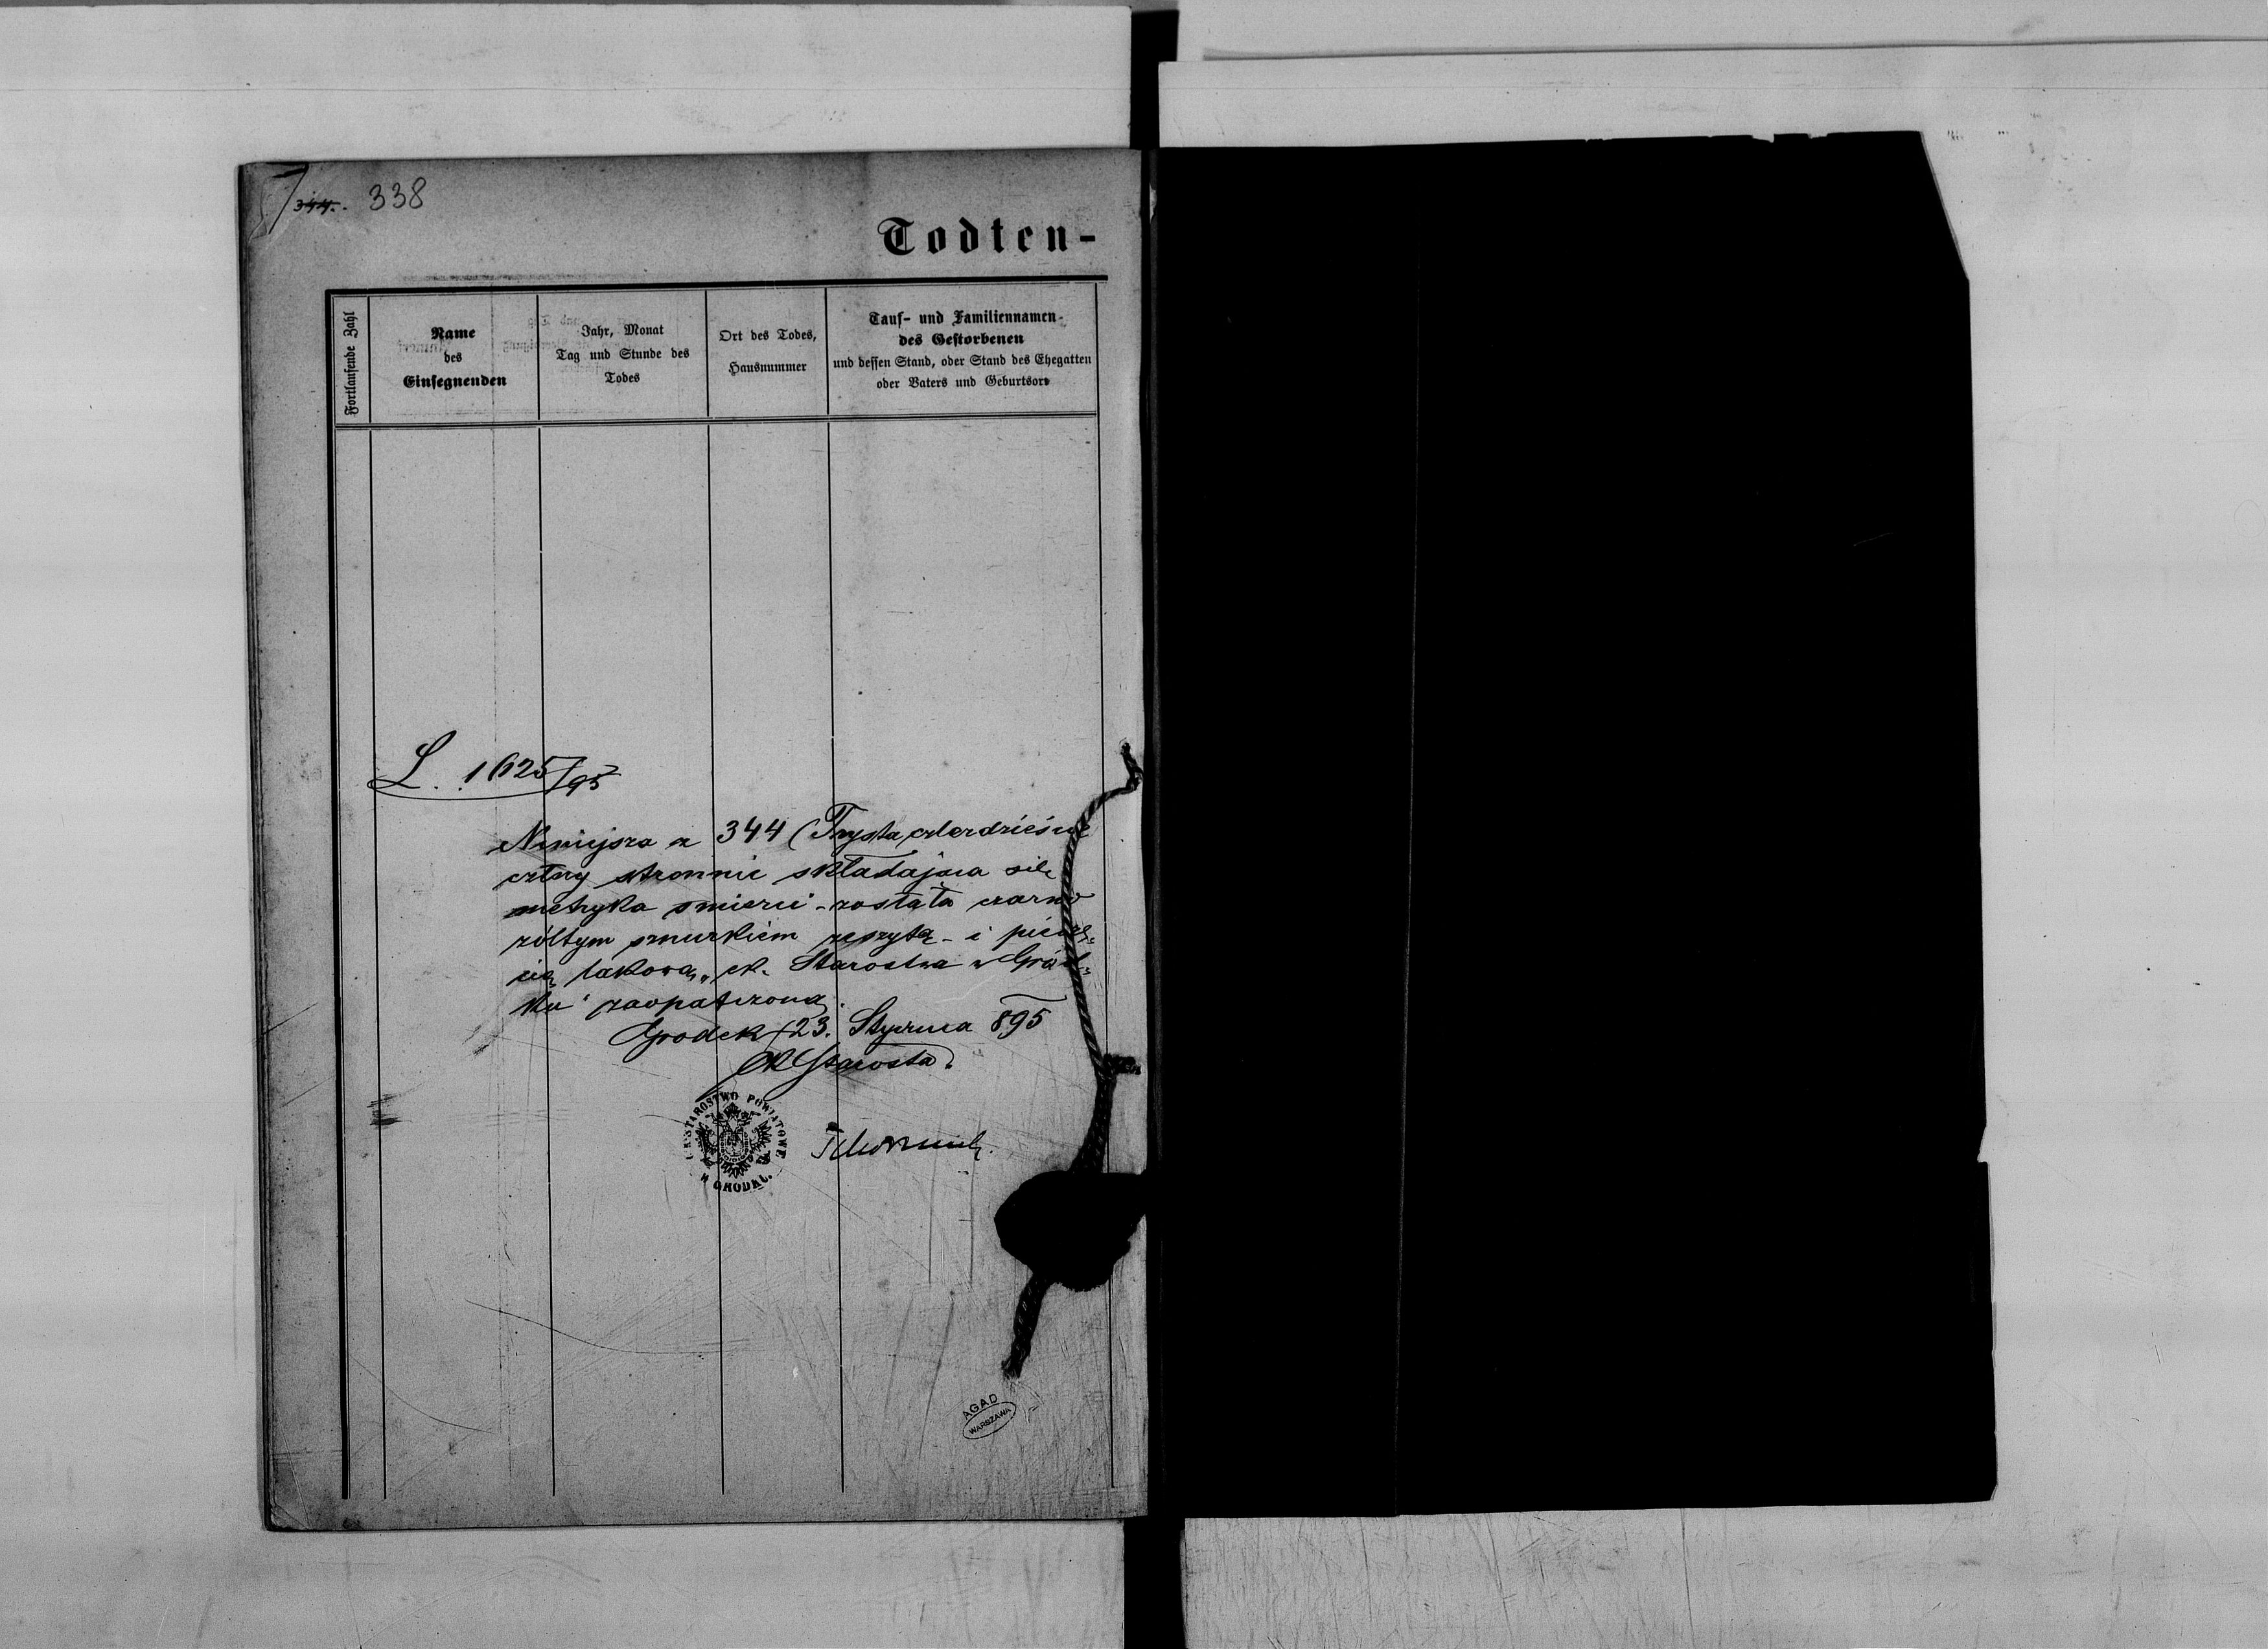 344. 338
Todten-
Fortlaufende Zahl
Name
des
Einsegnenden
Jahr, Monat
Tag und Stunde des
Todes
Ort des Todes,
Hausnummer
Tauf- und Familiennamen
des Gestorbenen
und dessen Stand, oder Stand des Ehegatten
oder Vaters und Geburtsort
L. 1625/95
Niniejsza z 344 (Trzysta czterdzieście
cztery stronnic składająca się
metryka śmierci - została czarno
żółtym sznurkiem zeszytą - i pieczę-
cią lakową „ck. Starostwa w Gród-
ku" zaopatrzoną.
Gródek 23. Stycznia 895
CK Starosta.
C.K. STAROSTWO POWIATOWE
W GRODKU.
AGAD
WARSZAWA